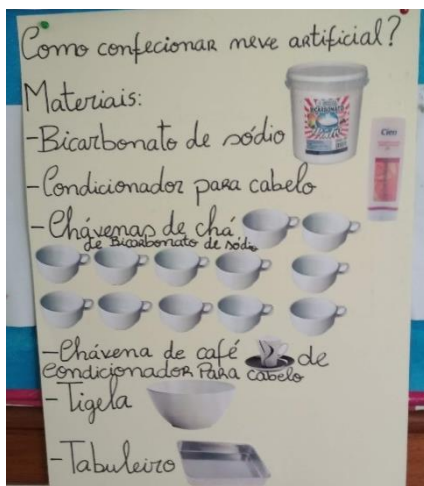 Como confecionar neve artificial?
Materiais:
-Bicarbonato de sódio
BICARBONATO
Cien
-Condicionador para cabelo
-Chávenas de chá
de Bicarbonato de sódio
-Chávena de café de
Condicionador Para cabelo
-Tigela
-Tabuleiro